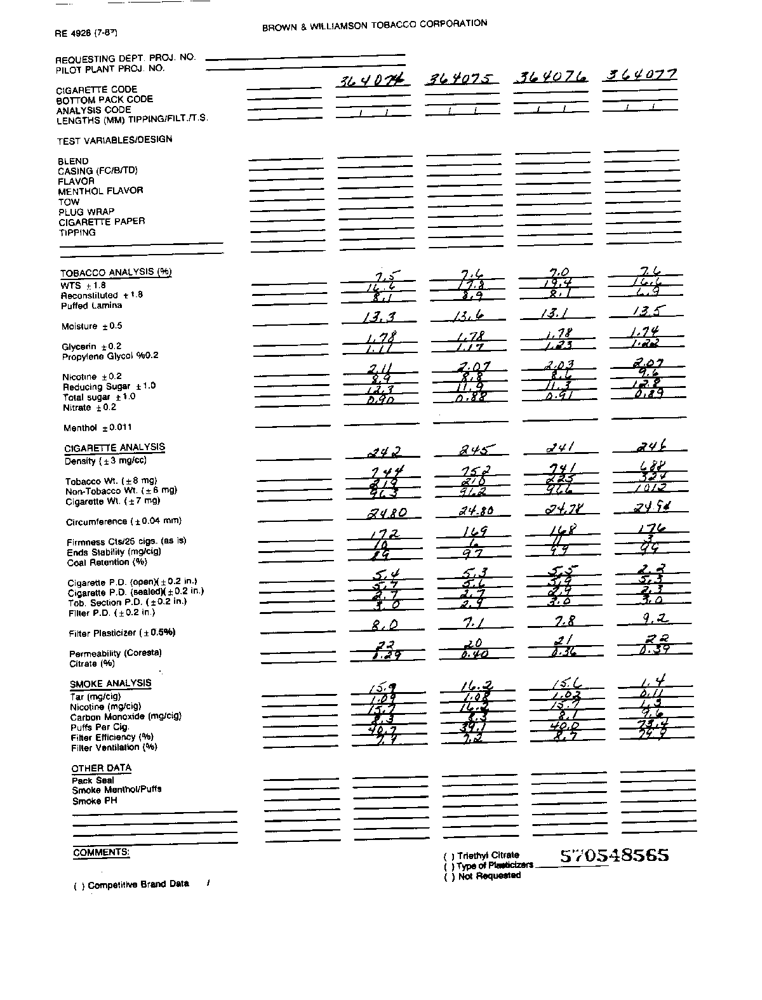 RE 4926 (7-87)
BROWN & WILLIAMSON TOBACCO CORPORATION
REQUESTING DEPT. PROJ. NO.
PILOT PLANT PROJ. NO.
CIGARETTE CODE 364074 364075 364076 364077
BOTTOM PACK CODE
ANALYSIS CODE
LENGTHS (MM) TIPPING/FILT./T.S. / / / / / / / /
TEST VARIABLES/DESIGN
BLEND
CASING (FC/B/TD)
FLAVOR
MENTHOL FLAVOR
TOW
PLUG WRAP
CIGARETTE PAPER
TIPPING
TOBACCO ANALYSIS (%)
WTS ±1.8 7.5 7.6 7.0 7.6
Reconstituted ±1.8 16.6 17.8 19.4 16.6
Puffed Lamina 8.1 8.9 8.1 6.9
Moisture ±0.5 13.3 13.6 13.1 13.5
Glycerin ±0.2 1.78 1.78 1.78 1.74
Propylene Glycol %0.2 1.11 1.17 1.23 1.22
Nicotine ±0.2 2.11 2.07 2.03 2.07
Reducing Sugar ±1.0 8.9 8.8 8.6 9.6
Total sugar ±1.0 12.3 11.9 11.3 12.8
Nitrate ±0.2 0.90 0.88 0.91 0.89
Menthol ±0.011
CIGARETTE ANALYSIS
Density (±3 mg/cc) 242 245 241 246
Tobacco Wt. (±8 mg) 744 752 741 688
Non-Tobacco Wt. (±6 mg) 219 210 225 324
Cigarette Wt. (±7 mg) 963 962 966 1012
Circumference (±0.04 mm) 24.80 24.80 24.78
Firmness Cts/25 cigs. (as is) 172 169 168 176
Ends Stability (mg/cig) 10 6 11 3
Coal Retention (%) 97 99
Cigarette P.D. (open)(±0.2 in.) 5.4 5.3 5.5 2.2
Cigarette P.D. (sealed)(±0.2 in.) 5.7 5.6 5.9 5.3
Tob. Section P.D. (±0.2 in.) 2.7 2.7 2.9 2.3
Filter P.D. (±0.2 in.) 3.0 2.9 3.0 3.0
Filter Plasticizer (±0.5%) 8.0 7.1 7.8 9.2
Permeability (Coresta) 22 20 21 22
Citrate (%) 0.40 0.36 0.39
SMOKE ANALYSIS
Tar (mg/cig) 15.9 16.2 15.6 1.4
Nicotine (mg/cig) 1.09 1.08 1.03 0.11
Carbon Monoxide (mg/cig) 15.7 16.2 15.7 1.3
Puffs Per Cig. 8.3 8.3 8.1 9.6
Filter Efficiency (%) 40.7 39.1 40.0 73.4
Filter Ventilation (%) 7.2 8.7
OTHER DATA
Pack Seal
Smoke Menthol/Puffs
Smoke PH
COMMENTS:
( ) Competitive Brand Data /
( ) Triethyl Citrate
( ) Type of Plasticizers
( ) Not Requested
570548565